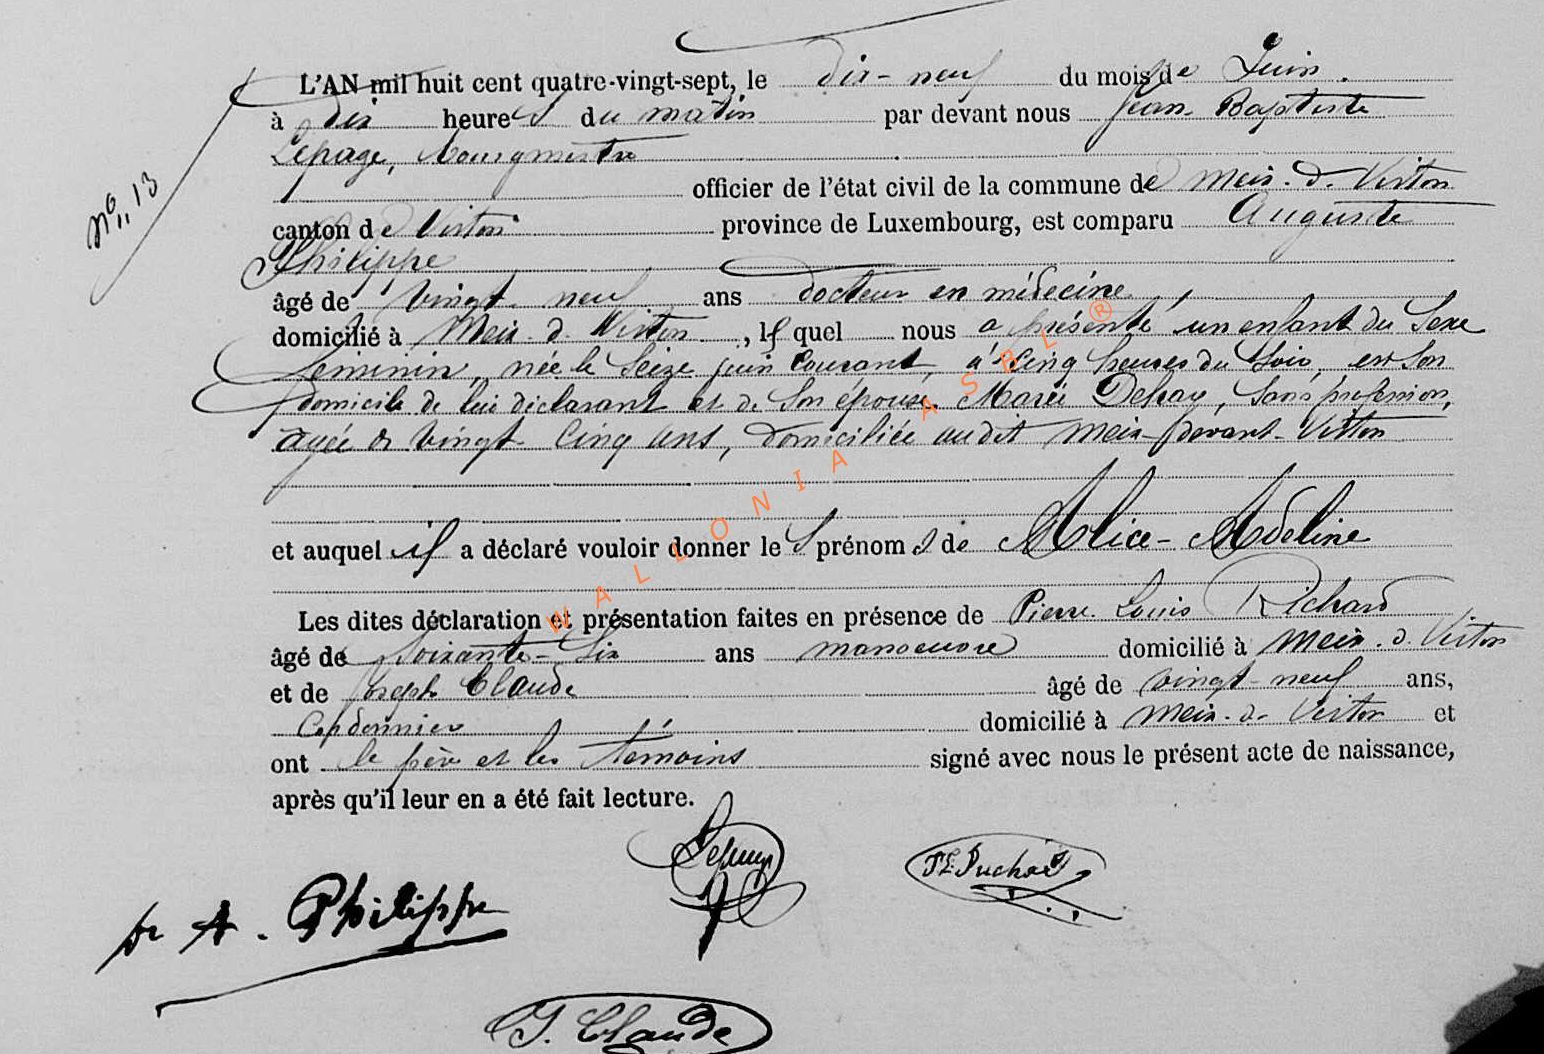 L'AN mil huit cent quatre-vingt-sept, le dix-neuf du mois de Juin.
à dix heures du matin par devant nous Jean-Baptiste
Lepage, bourgmestre
officier de l'état civil de la commune de Meix-d-Virton
N° 13
canton de Virton province de Luxembourg, est comparu Auguste
Philippe
âgé de vingt-neuf ans docteur en médecine,
domicilié à Meix-d-Virton, lequel nous a présenté un enfant du Sexe
féminin, née le Seize juin Courant, à Cinq heures du Soir, en Son
domicile de lui déclarant et de Son épouse Marie Delhay, Sans profession,
agée de Vingt Cinq ans, domiciliée audit Meix-devant-Virton
et auquel il a déclaré vouloir donner les prénoms de Alice-Adeline
Les dites déclaration et présentation faites en présence de Pierre Louis Richard
âgé de Soixante-Six ans manoeuvre domicilié à Meix-d-Virton
et de Joseph Claude âgé de vingt-neuf ans,
Cordonnier domicilié à Meix-d-Virton et
ont le père et les témoins signé avec nous le présent acte de naissance,
après qu'il leur en a été fait lecture.
Lepage
Dr A. Philippe
J. Claude
WALLONIA ASBL ®